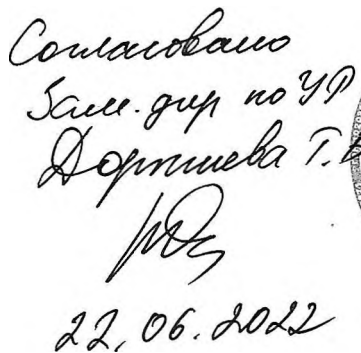 Согласовано
Зам. дир по УР
Доржиева Т.В
22.06.2022